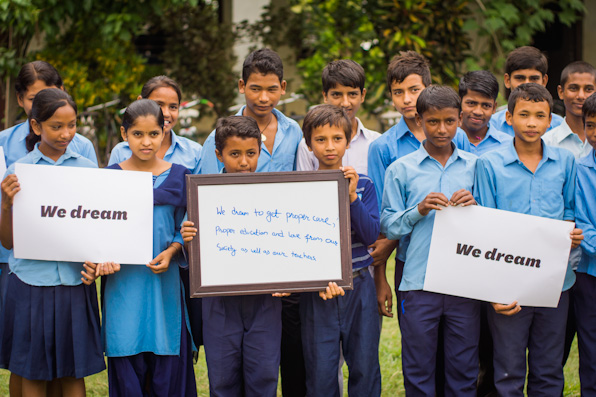 We dream
We dream to get proper care,
Proper education and love from our
Society as well as our teachers
We dream